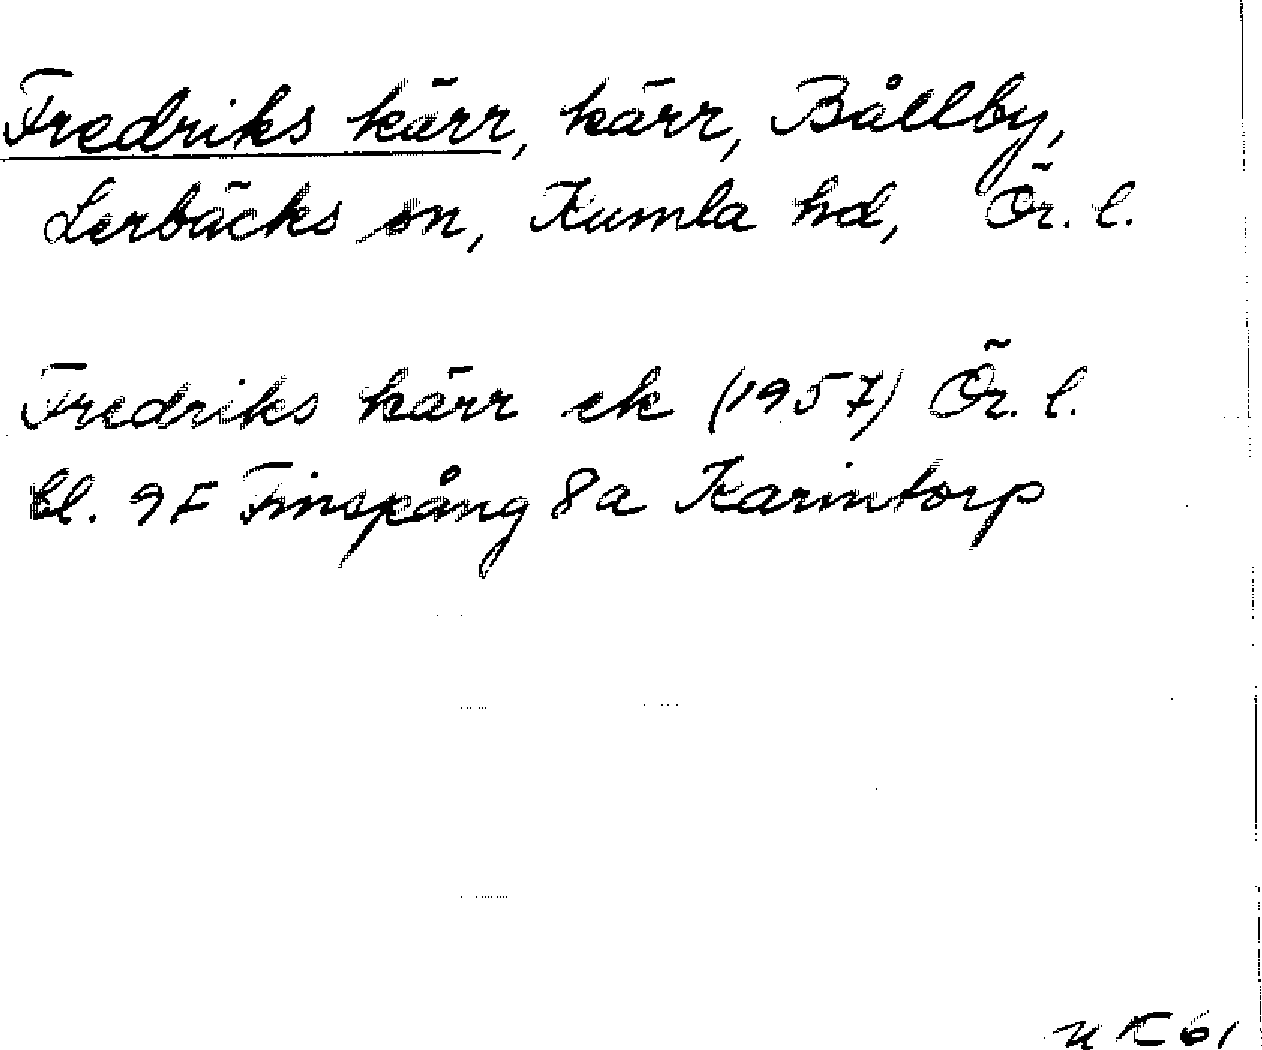 Fredriks kärr, kärr, Bållby,
Lerbäcks sn, Kumla hd, Ör. l.
Fredriks kärr ek (1957) Ör. l.
bl. 9F Finspång 8a Karintorp
61